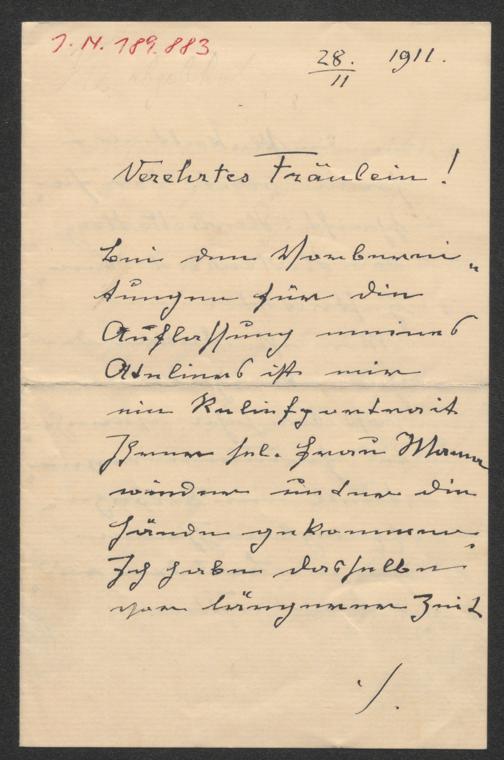 J. N. 189.883
28. 1911.
11
Verehrtes Fräulein!
Bei den Vorberei„
tungen für die
Auflassung meines
Ateliers ist mir
ein Reliefportrait
Ihrer sel. Frau Mama
wieder unter die
Hände gekommen.
Ich habe dasselbe
vor längerer Zeit
./.